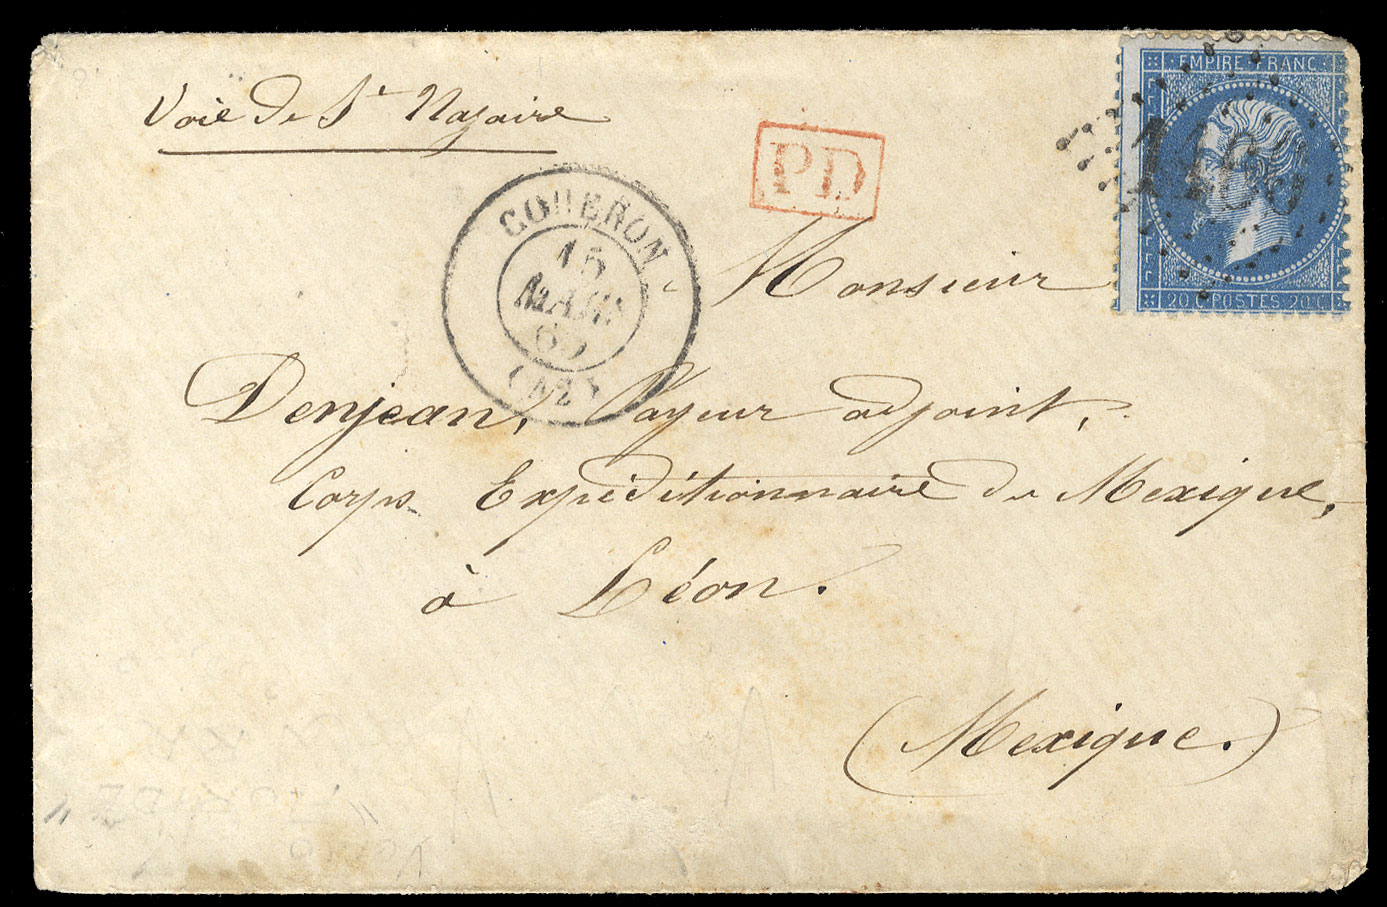 Voie de St Nazaire
PD
EMPIRE FRANC
20 C POSTES 20 C
COUERON
15
MARS
65
(42)
Monsieur
Denjean, Payeur adjoint,
Corps Expéditionnaire du Mexique,
à Léon.
(Mexique.)